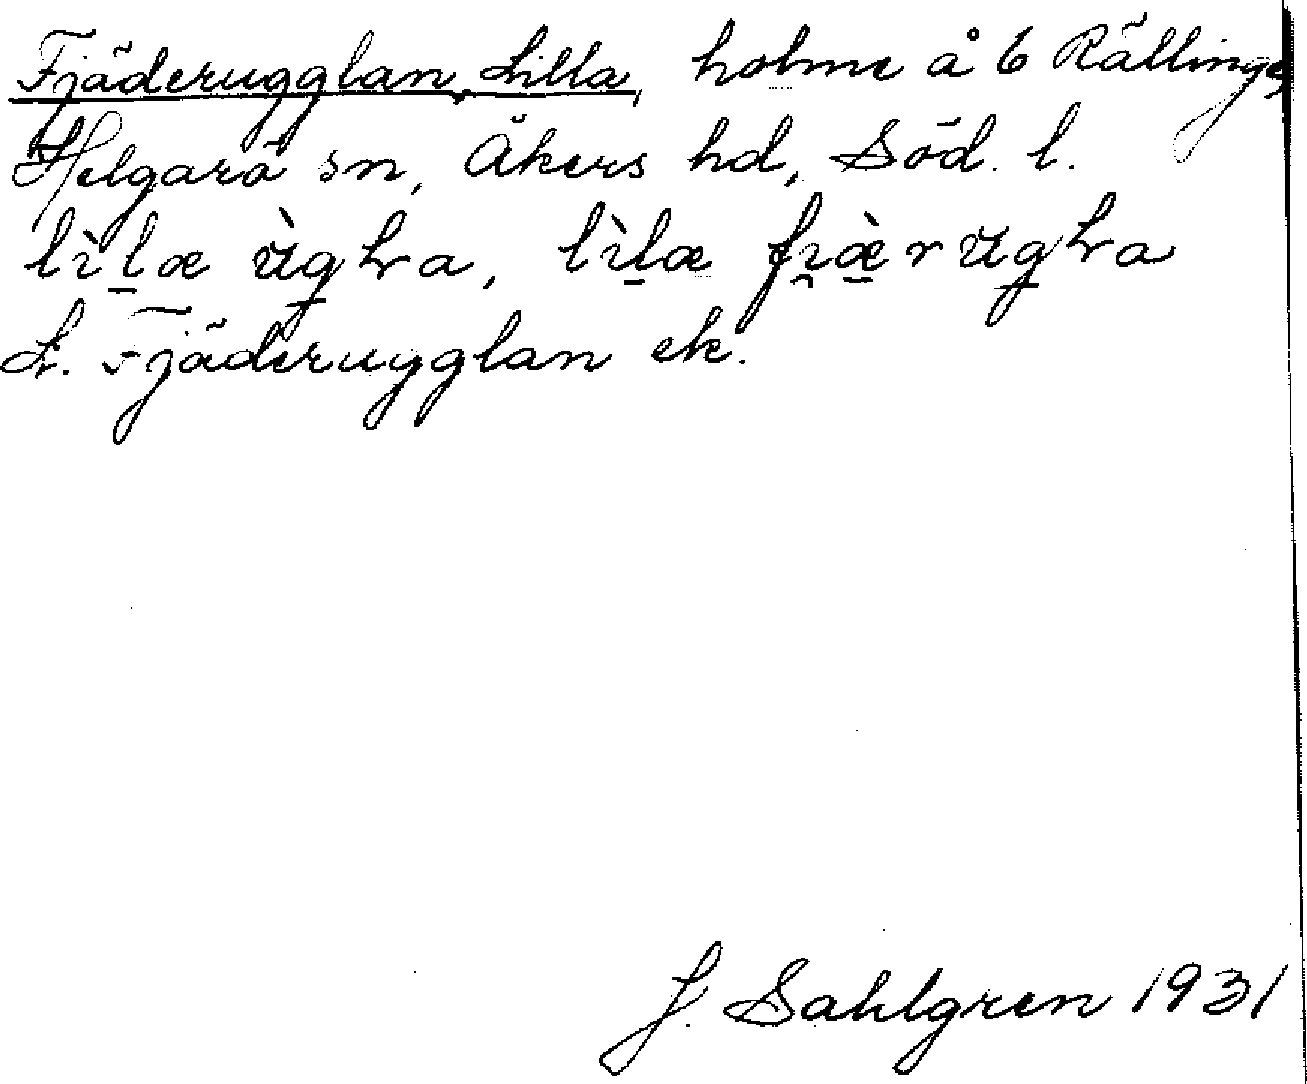 Fjäderugglan, Lilla, holme å 6 Rällinge,
Helgarö sn, Åkers hd, Söd. l.
lìlæ ùgɫa, lìlæ fi̯æ̀rugɫa
L. Fjäderugglan ek.
J. Sahlgren 1931